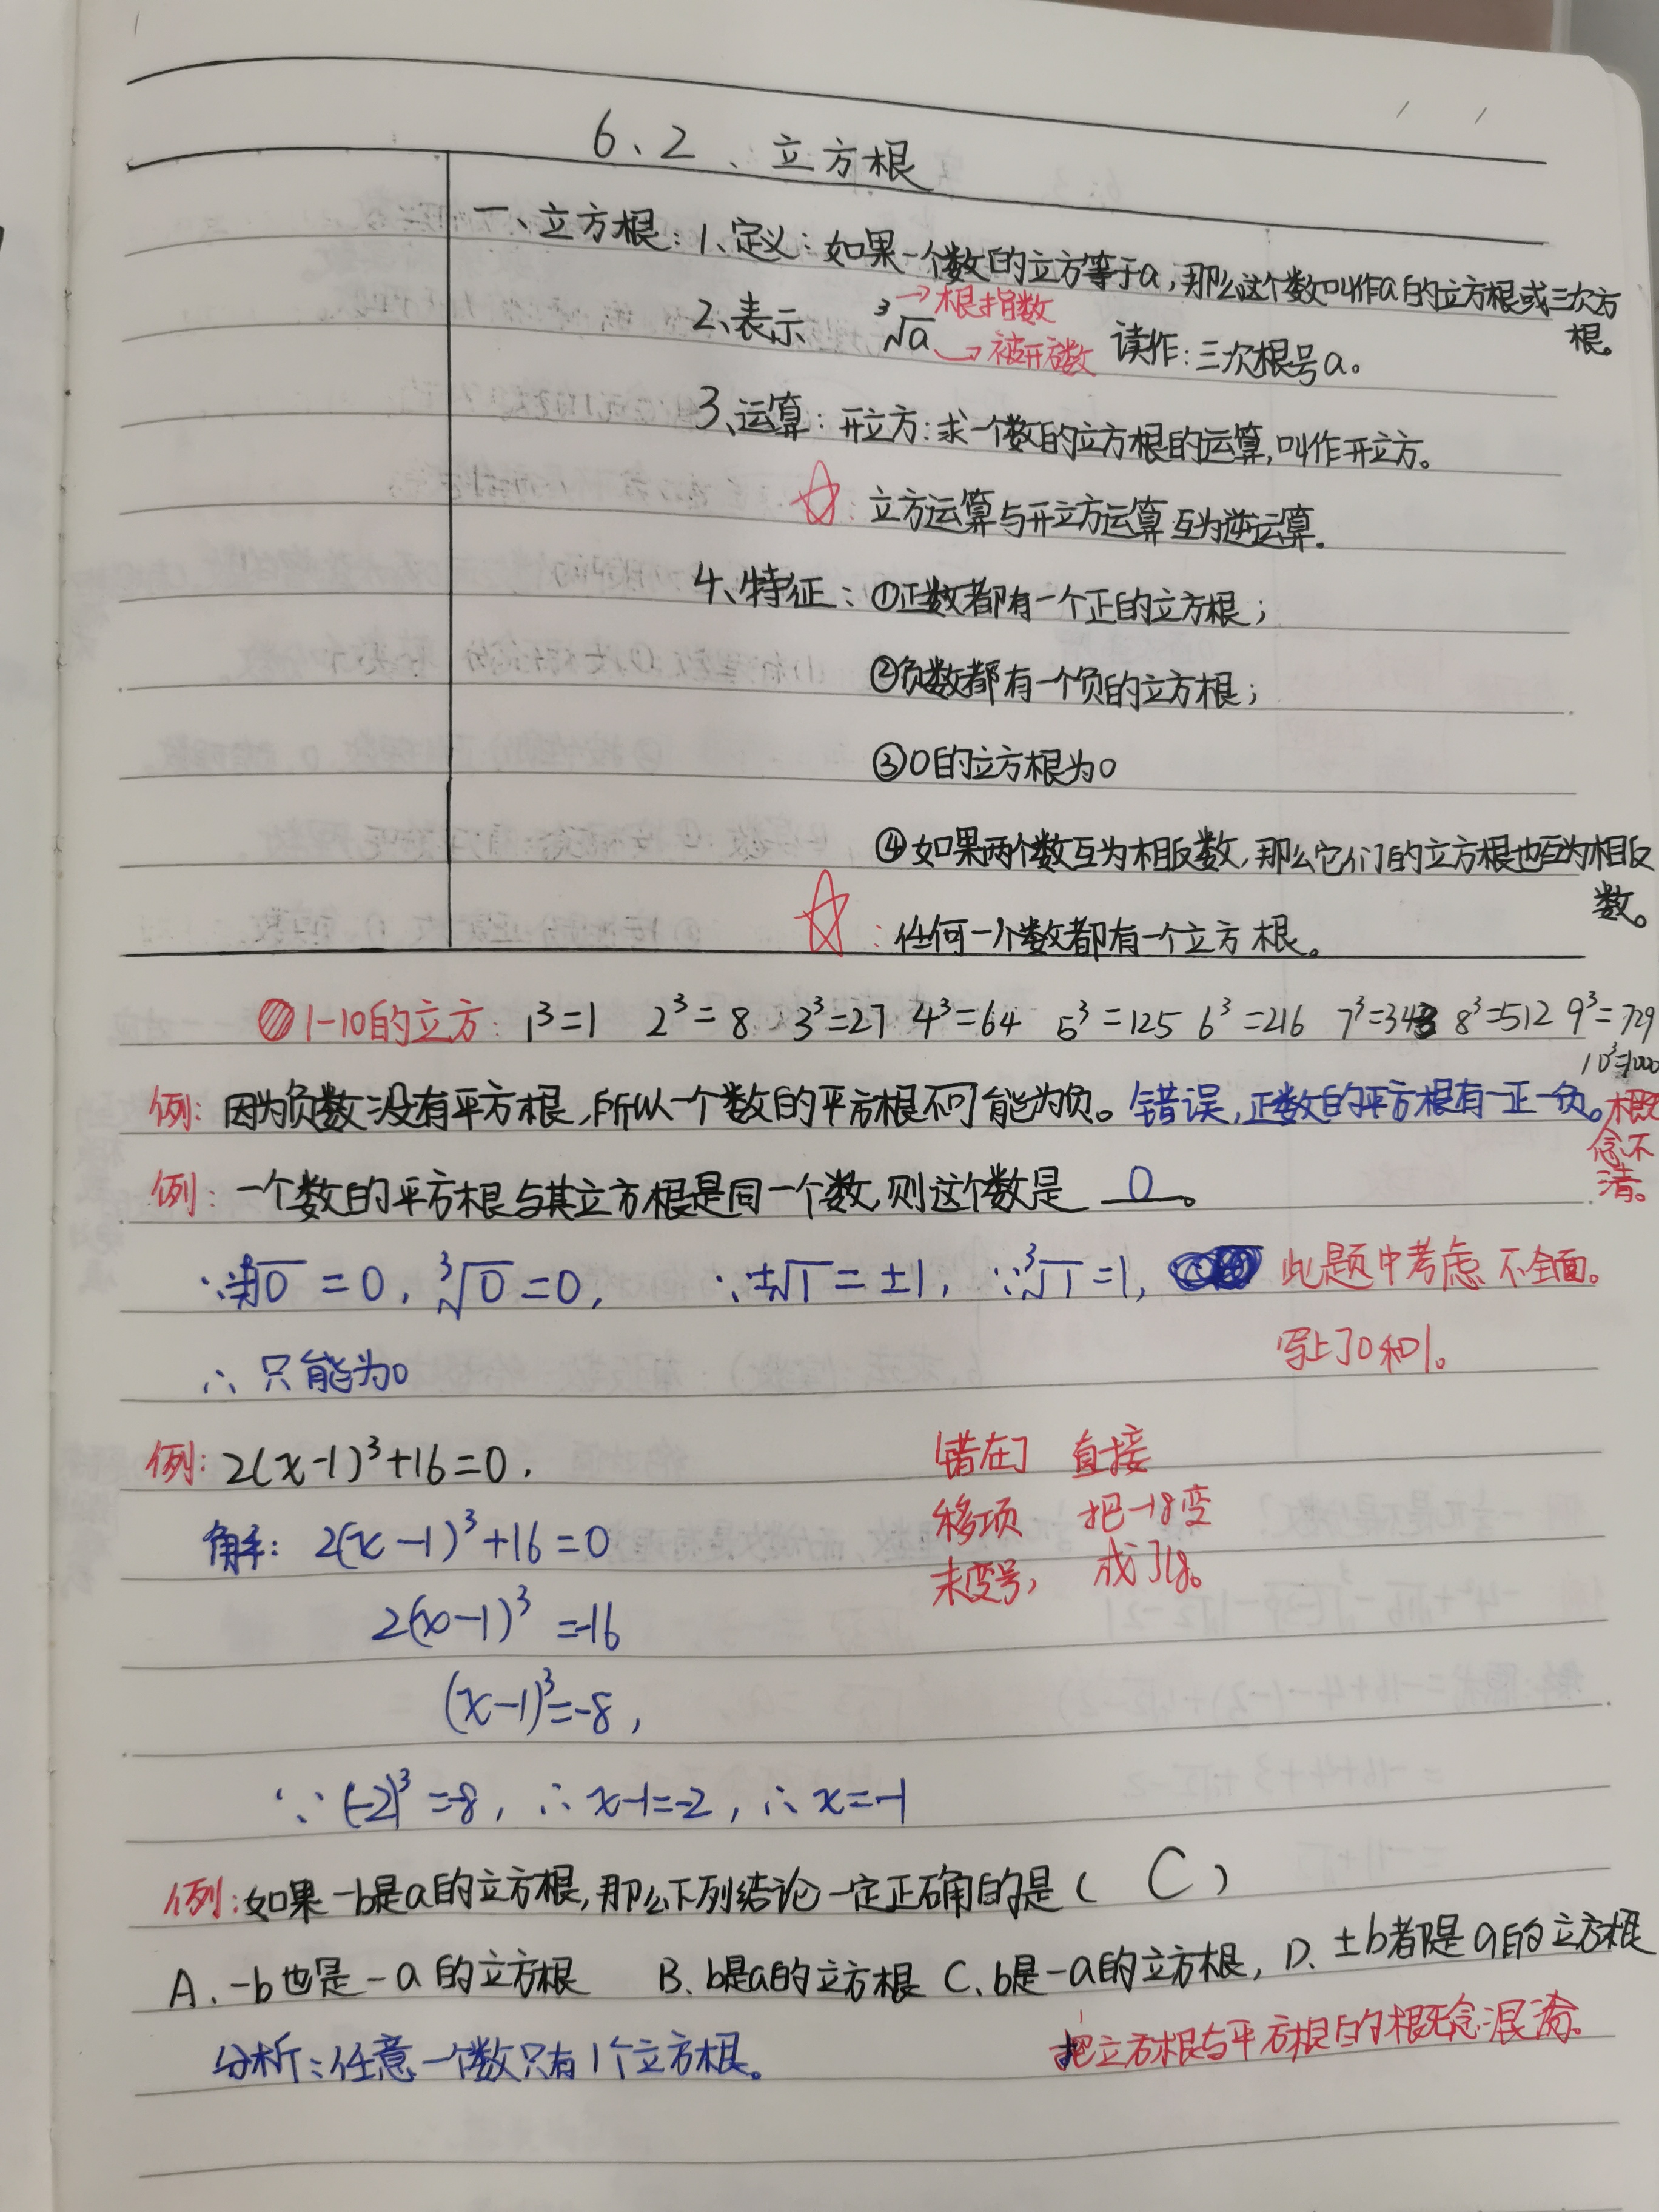 6、2、立方根
一、立方根：1、定义：如果一个数的立方等于a，那么这个数叫作a的立方根或三次方根。
2、表示 ³√a →根指数 →被开方数 读作：三次根号a。
3、运算：开立方：求一个数的立方根的运算，叫作开立方。
☆：立方运算与开立方运算互为逆运算。
4、特征：①正数都有一个正的立方根；
②负数都有一个负的立方根；
③0的立方根为0
④如果两个数互为相反数，那么它们的立方根也互为相反数。
☆：任何一个数都有一个立方根。
1-10的立方：1³=1 2³=8 3³=27 4³=64 5³=125 6³=216 7³=343 8³=512 9³=729
10³=1000
例：因为负数没有平方根，所以一个数的平方根不可能为负。错误，正数的平方根有一正一负。概念不清。
例：一个数的平方根与其立方根是同一个数，则这个数是 0 。
∵ √0=0，³√0=0， ∵±√1=±1，∵³√1=1， 此题中考虑不全面。
写上了0和1。
∴只能为0
例：2(x-1)³+16=0．
错在了 直接
解：2(x-1)³+16=0
移项 把-18变
未变号， 成了18。
2(x-1)³=-16
(x-1)³=-8，
∵(-2)³=-8，∴x-1=-2，∴x=-1
例：如果-b是a的立方根，那么下列结论一定正确的是（ C ）
A、-b也是-a的立方根 B、b是a的立方根 C、b是-a的立方根， D、±b都是a的立方根
分析：任意一个数只有1个立方根。 把立方根与平方根的概念混淆。